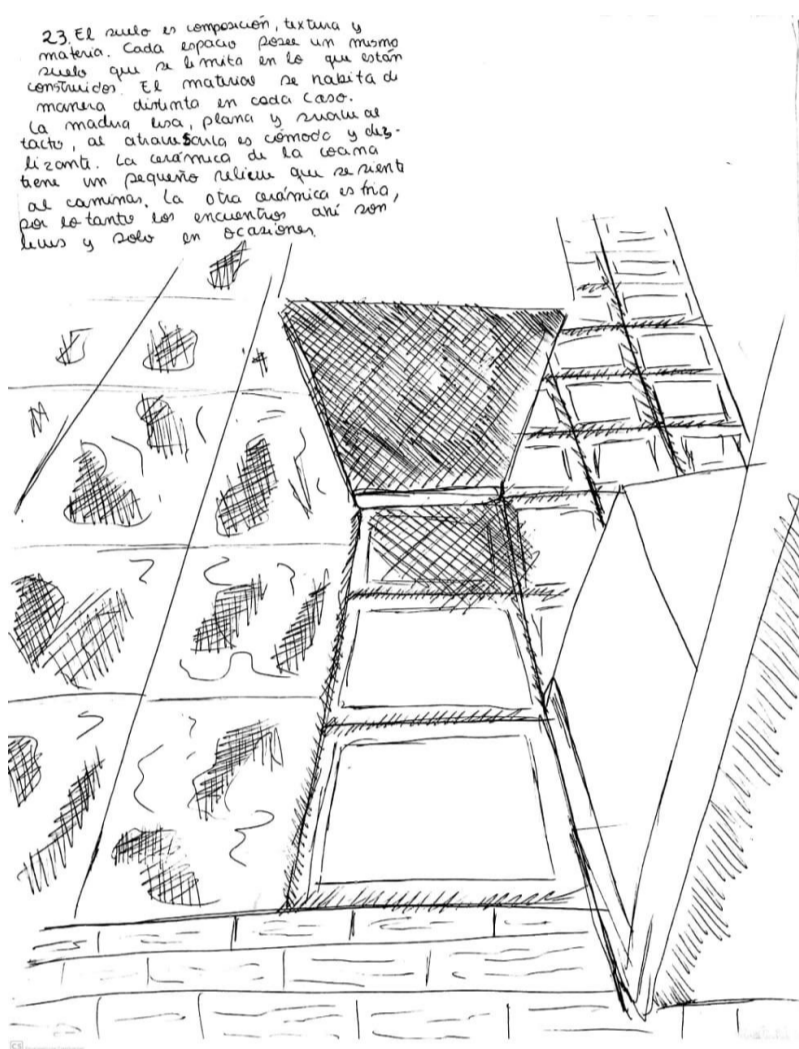 23. El suelo es composición, textura y
materia. Cada espacio posee un mismo
suelo que se limita en lo que están
construidos. El material se habita de
manera distinta en cada caso.
La madera lisa, plana y suave al
tacto, al atravesarla es cómodo y des-
lizante. La cerámica de la cocina
tiene un pequeño relieve que se siente
al caminar. La otra cerámica es fria,
por lo tanto los encuentros ahí son
leves y solo en ocasiones.